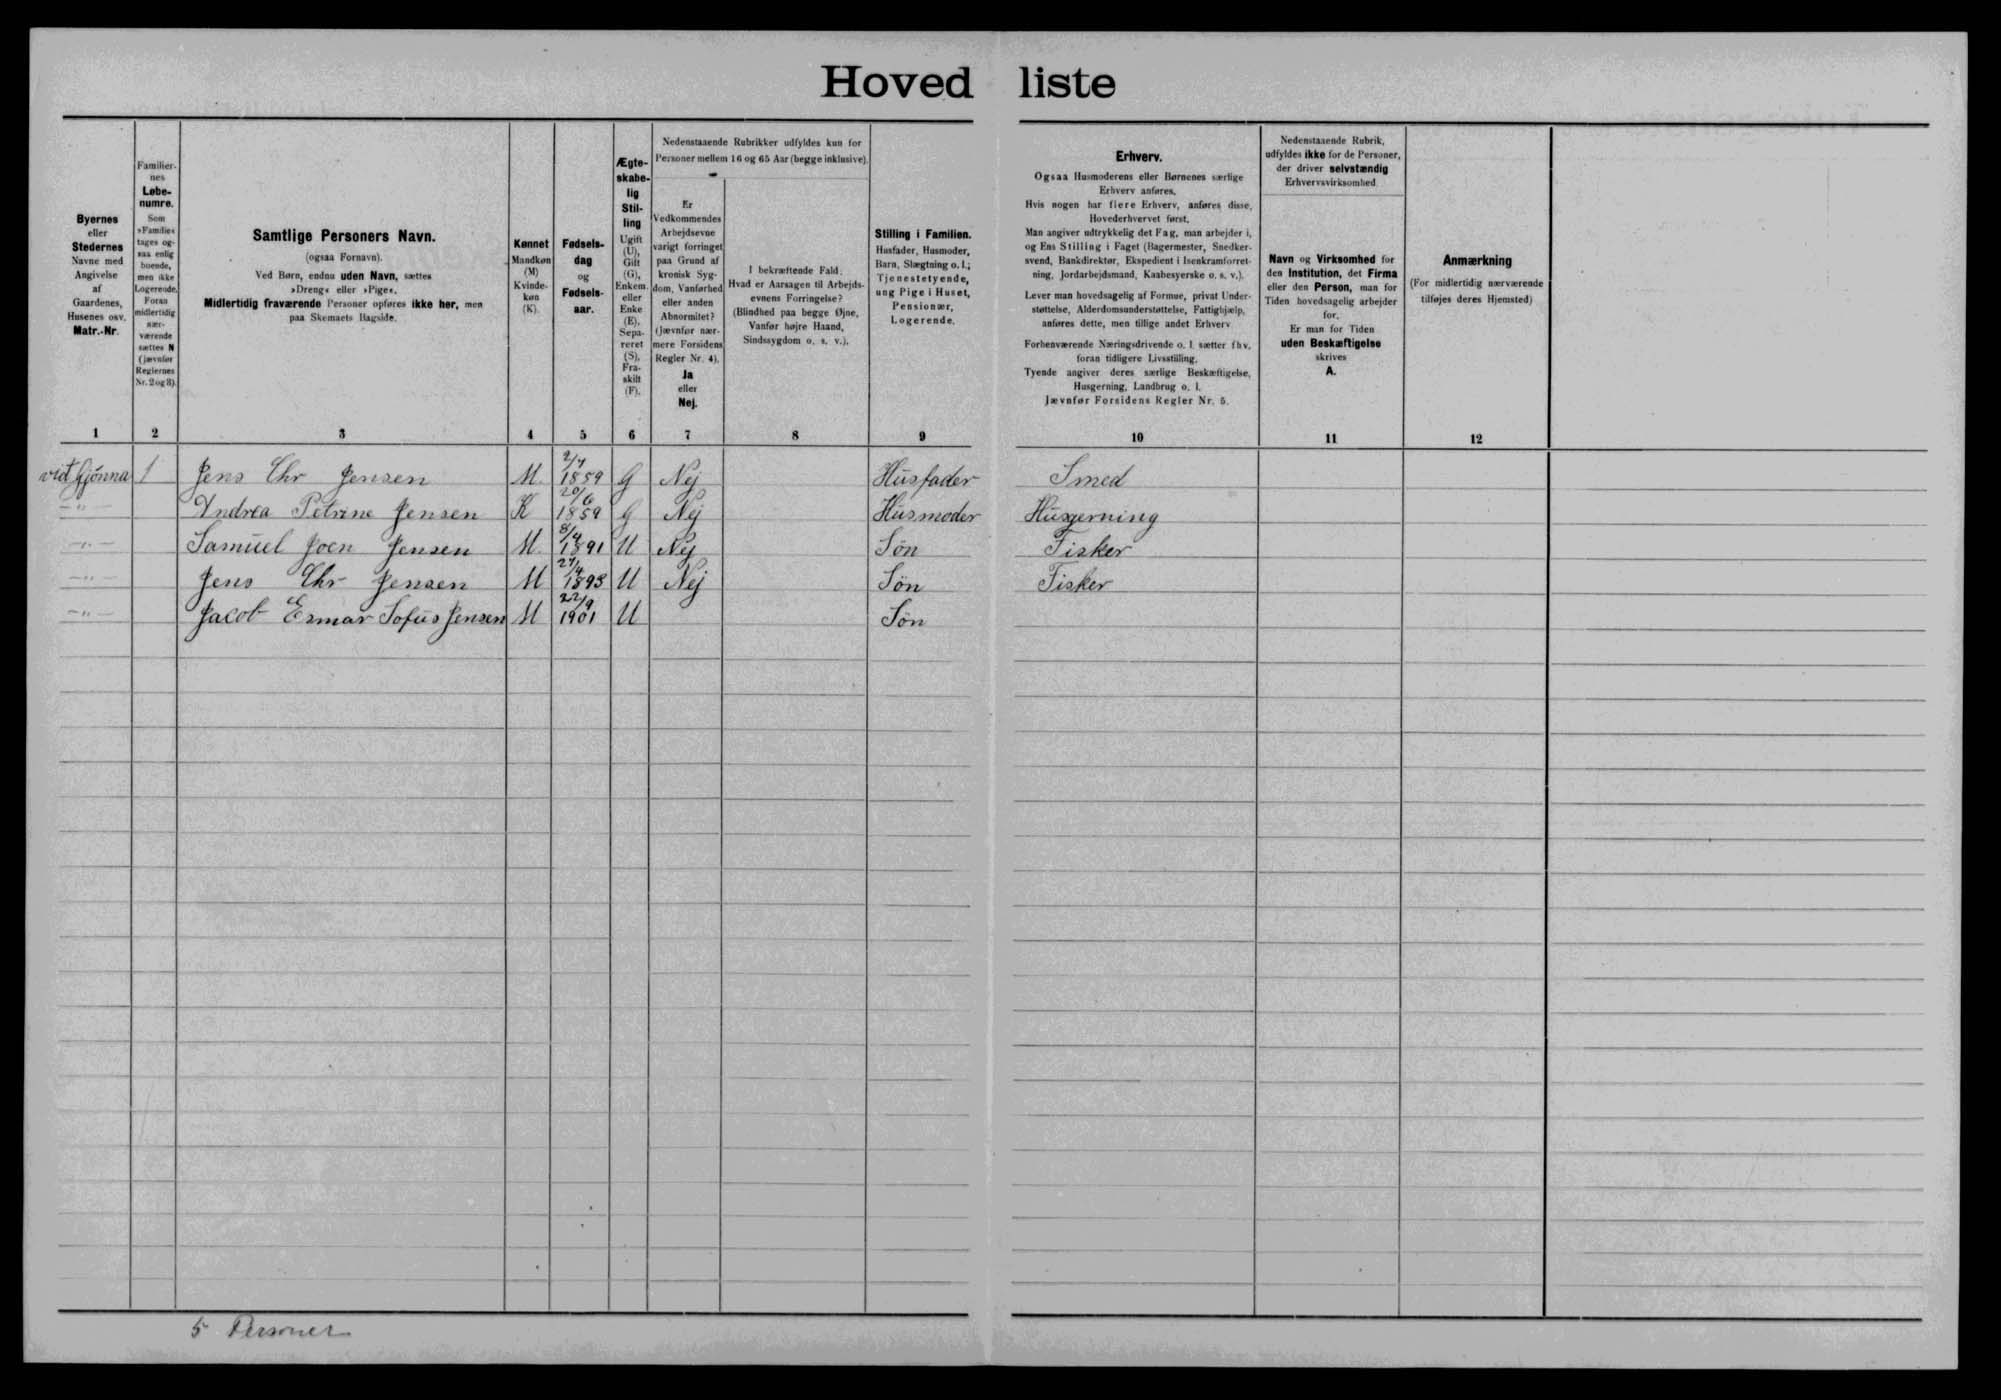 Hoved liste
Byernes
eller
Stedernes
Navne med
Angivelse
af
Gaardenes,
Husenes osv.
Matr.-Nr.
Familier-
nes
Løbe-
numre.
Som
»Familie«
tages og-
saa enlig
boende,
men ikke
Logerende.
Foran
midlertidig
nær-
værende
sættes N
(jævnfør
Reglernes
Nr. 2 og 8).
Samtlige Personers Navn.
(ogsaa Fornavn).
Ved Børn, endnu uden Navn, sættes
»Dreng« eller »Pige«.
Midlertidig fraværende Personer opføres ikke her, men
paa Skemaets Bagside.
Kønnet
Mandkøn
(M)
Kvinde-
køn
(K).
Fødsels-
dag
og
Fødsels-
aar.
Ægte-
skabe-
lig
Stil-
ling
Ugift
(U),
Gift
(G),
Enkem.
eller
Enke
(E),
Sepa-
reret
(S),
Fra-
skilt
(F).
Nedenstaaende Rubrikker udfyldes kun for
Personer mellem 16 og 65 Aar (begge inklusive).
Er
Vedkommendes
Arbejdsevne
varigt forringet
paa Grund af
kronisk Syg-
dom, Vanførhed
eller anden
Abnormitet?
(Jævnfør nær-
mere Forsidens
Regler Nr. 4).
Ja
eller
Nej.
I bekræftende Fald:
Hvad er Aarsagen til Arbejds-
evnens Forringelse?
(Blindhed paa begge Øjne,
Vanfør højre Haand,
Sindssygdom o. s. v.).
Stilling i Familien.
Husfader, Husmoder,
Barn, Slægtning o. l.;
Tjenestetyende,
ung Pige i Huset,
Pensionær,
Logerende.
Erhverv.
Ogsaa Husmoderens eller Børnenes særlige
Erhverv anføres.
Hvis nogen har flere Erhverv, anføres disse,
Hovederhvervet først.
Man angiver udtrykkelig det Fag, man arbejder i,
og Ens Stilling i Faget (Bagermester, Snedker-
svend, Bankdirektør, Ekspedient i Isenkramforret-
ning, Jordarbejdsmand, Kaabesyerske o. s. v.).
Lever man hovedsagelig af Formue, privat Under-
støttelse, Alderdomsunderstøttelse, Fattighjælp,
anføres dette, men tillige andet Erhverv
Forhenværende Næringsdrivende o. l. sætter fhv.
foran tidligere Livsstilling.
Tyende angiver deres særlige Beskæftigelse,
Husgerning, Landbrug o. l.
Jævnfør Forsidens Regler Nr. 5.
Nedenstaaende Rubrik,
udfyldes ikke for de Personer,
der driver selvstændig
Erhvervsvirksomhed
Navn og Virksomhed for
den Institution, det Firma
eller den Person, man for
Tiden hovedsagelig arbejder
for.
Er man for Tiden
uden Beskæftigelse
skrives
A.
Anmærkning
(For midlertidig nærværende
tilføjes deres Hjemsted)
1 2 3 4 5 6 7 8 9 10 11 12
við Gjónna 1 Jens Chr Jensen M. 2/4 1859 G Nej Husfader Smed
-"- Andrea Petrine Jensen K 20/6 1859 G Nej Husmoder Husgerning
-"- Samuel Joen Jensen M. 8/4 1891 U Nej Søn Fisker
-"- Jens Chr Jensen M 27/4 1893 U Nej Søn Fisker
-"- Jacob Esmar Sofus Jensen M 22/9 1901 U Søn
5 Personer